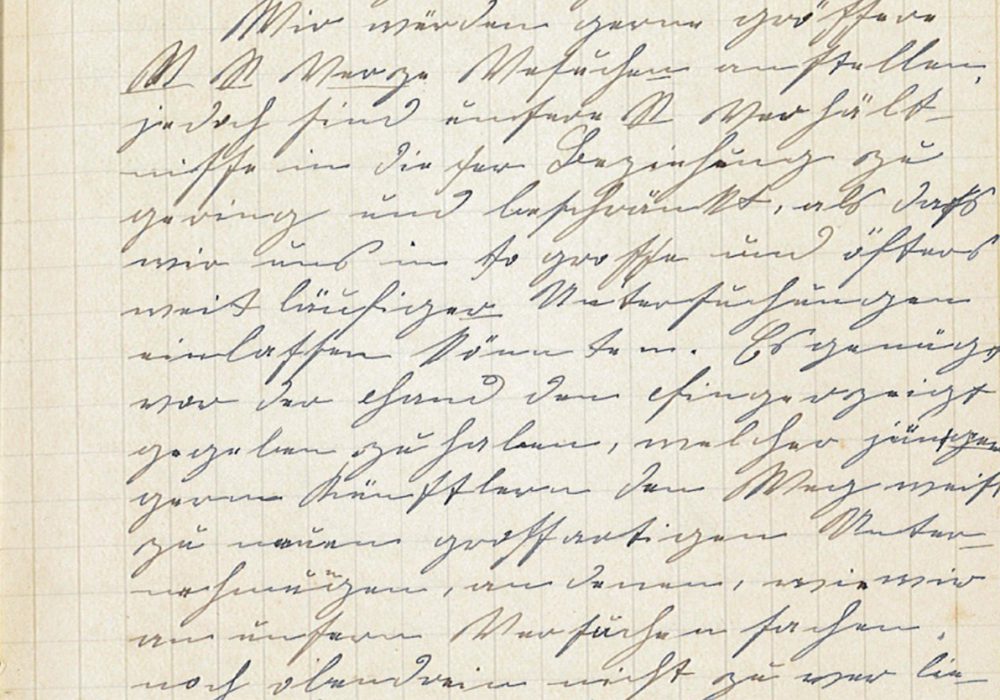 Wir würden gerne größere
Versuchen anstellen,
jedoch sind unsere Verhält-
nisse in dieser Beziehung zu
gering und beschränkt, als daß
wir uns in so große und öfters
weit läufiger Untersuchungen
einlassen könnten. Es genügt
vor der Hand den Fingerzeigt
gegeben zu haben, welcher
gern Künstlern den Weg weist
zu neuen großartigen Unter-
nehmungen, an denen, wie wir
an unsern Versuchen sachen,
noch obendrein nicht zu ver lie